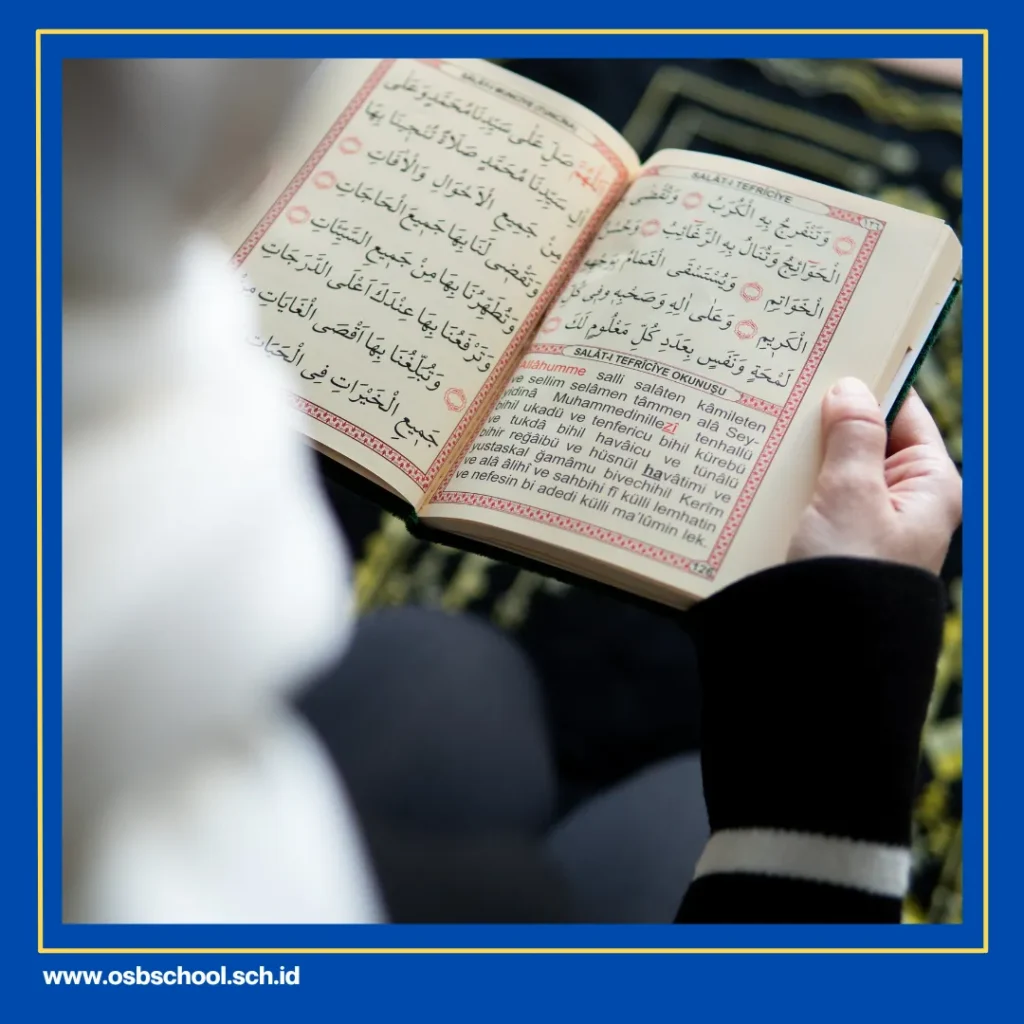 SALÂT-I MÜNCİYE (TÜNCİNA)
اَللّٰهُمَّ صَلِّ عَلٰى سَيِّدِنَا مُحَمَّدٍ وَعَلٰى
اٰلِ سَيِّدِنَا مُحَمَّدٍ صَلَاةً تُنْجِينَا بِهَا
مِنْ جَمِيعِ الْاَحْوَالِ وَالْاٰفَاتِ
وَتَقْضِى لَنَا بِهَا جَمِيعَ الْحَاجَاتِ
وَتُطَهِّرُنَا بِهَا مِنْ جَمِيعِ السَّيِّئَاتِ
وَتَرْفَعُنَا بِهَا عِنْدَكَ اَعْلَى الدَّرَجَاتِ
وَتُبَلِّغُنَا بِهَا اَقْصَى الْغَايَاتِ مِنْ
جَمِيعِ الْخَيْرَاتِ فِى الْحَيَاتِ
SALÂT-I TEFRİCİYE
١٢٦
وَتَنْفَرِجُ بِهِ الْكُرَبُ وَتُقْضٰى
الْحَوَائِجُ وَتُنَالُ بِهِ الرَّغَائِبُ وَحُسْنُ
الْخَوَاتِمِ وَيُسْتَسْقَى الْغَمَامُ بِوَجْهِهِ
الْكَرِيمِ وَعَلٰى اٰلِهِ وَصَحْبِهِ فِى كُلِّ
لَمْحَةٍ وَنَفَسٍ بِعَدَدِ كُلِّ مَعْلُومٍ لَكَ
SALÂT-I TEFRİCİYE OKUNUŞU
Allâhumme salli salâten kâmileten
ve sellim selâmen tâmmen alâ Sey-
yidinâ Muhammedinillezî tenhallü
bihil ukadü ve tenfericu bihil kürebü
ve tukdâ bihil havâicu ve tünâlü
bihir reğâibü ve hüsnül havâtimi ve
yustaskal ğamâmu bivechihil Kerîm
ve alâ âlihî ve sahbihî fî külli lemhatin
ve nefesin bi adedi külli ma'lûmin lek.
126
www.osbschool.sch.id